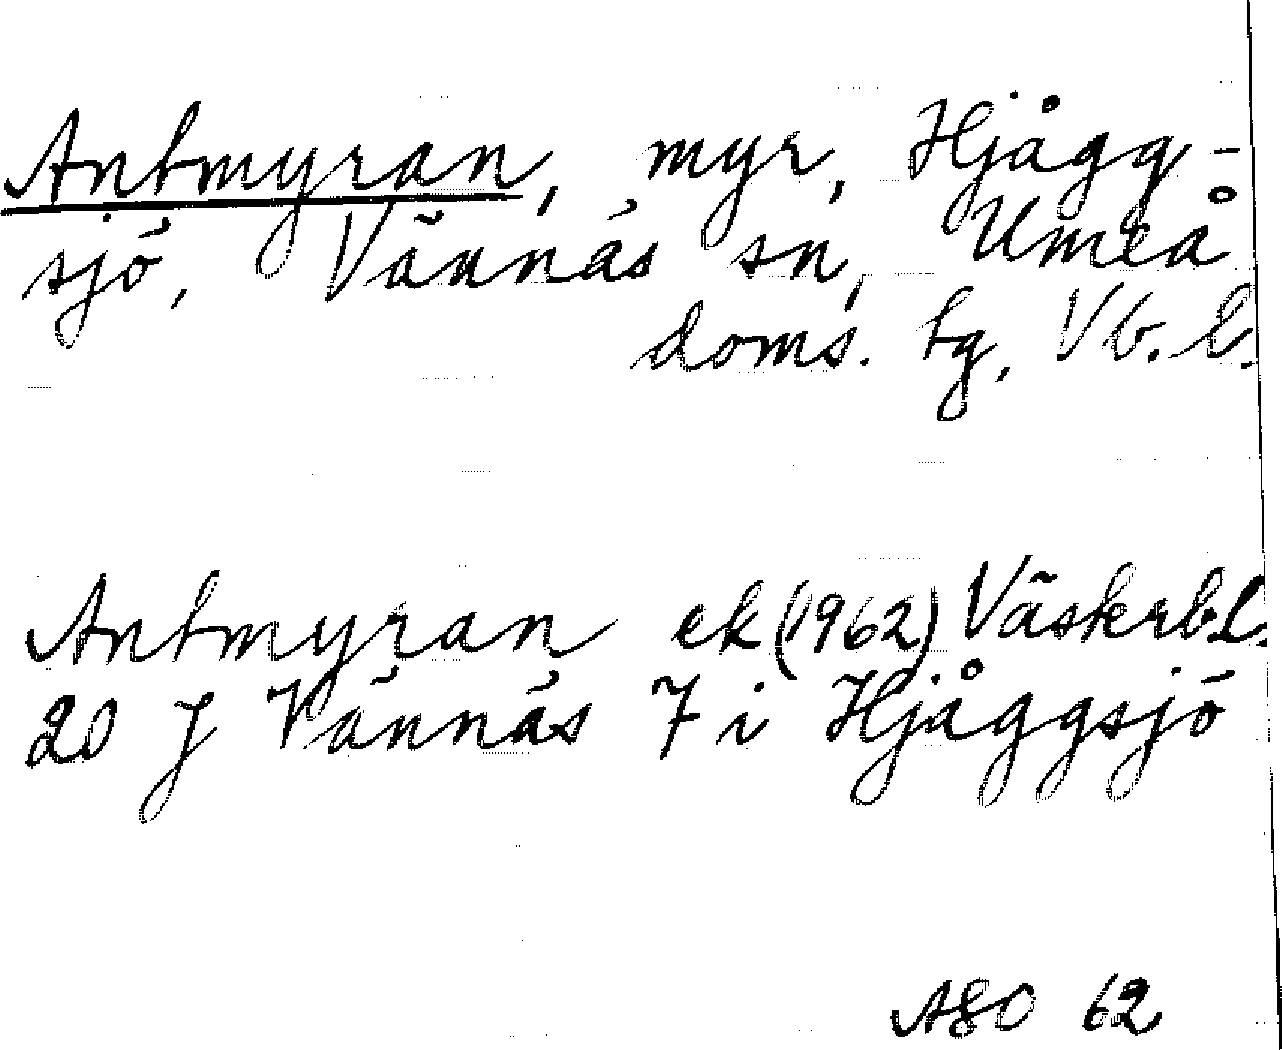 Antmyran, myr, Hjågg-
sjö, Vännäs sn, Umeå
doms. tg, Vb. l.
Antmyran ek (1962) Västerb.l.
20 J Vännäs 7 i Hjåggsjö
ASO 62